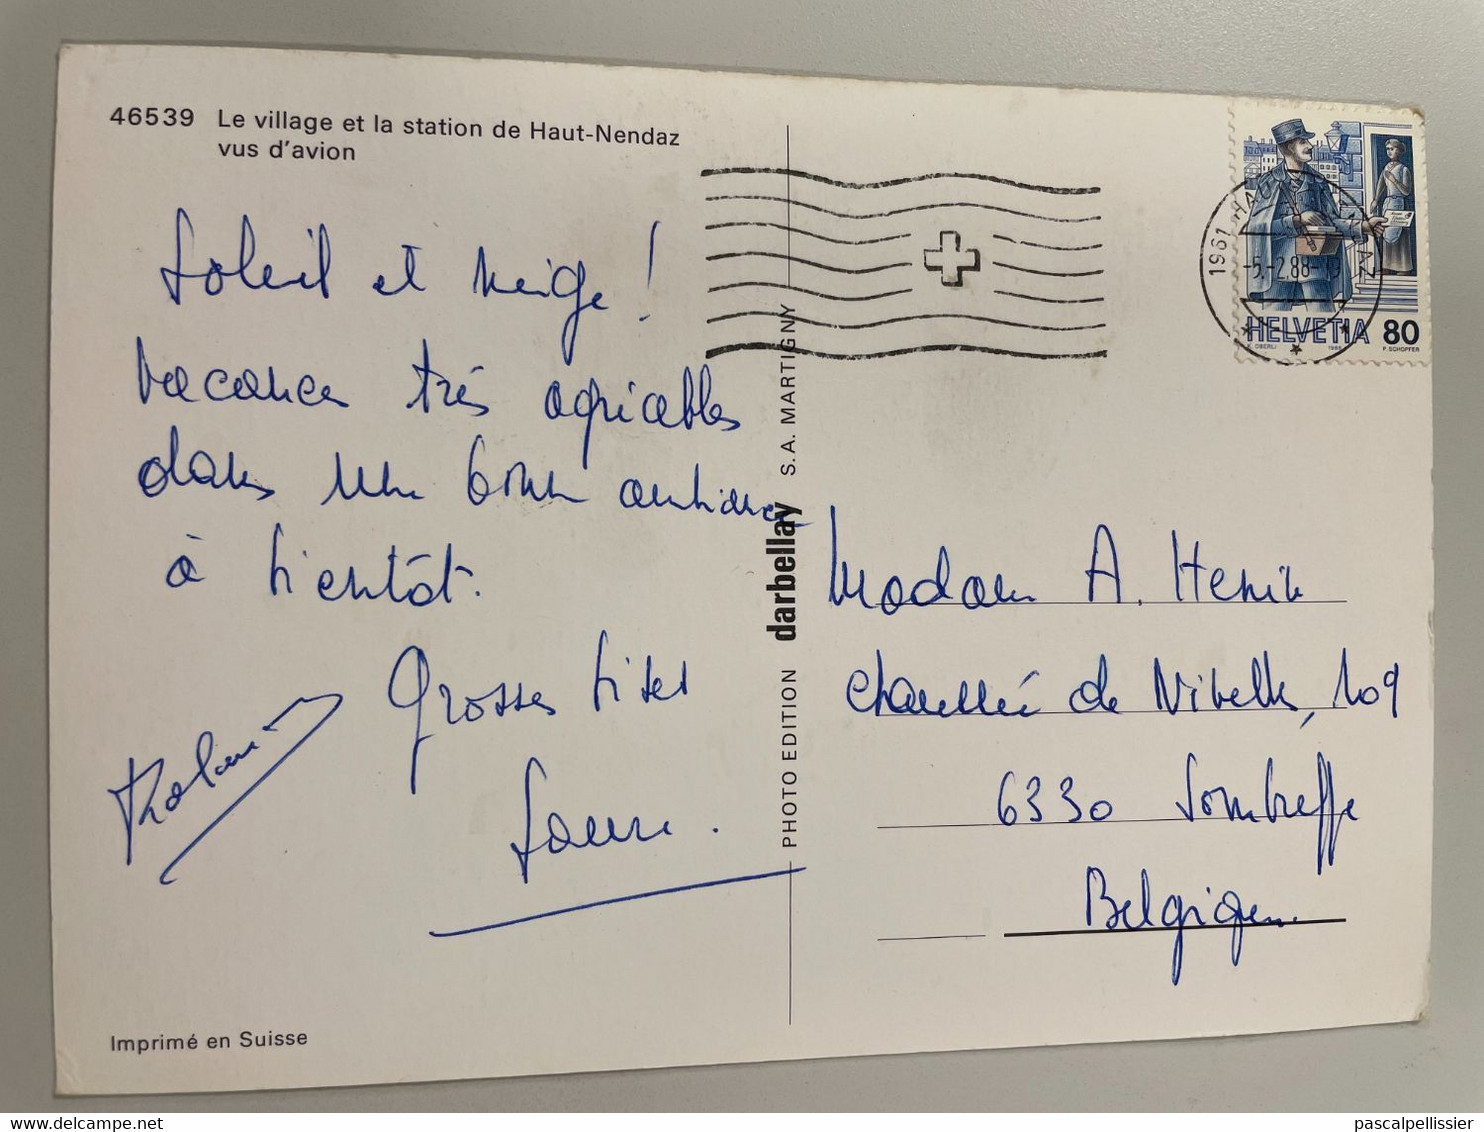 46539 Le village et la station de Haut-Nendaz
vus d'avion
Soleil et neige !
Vacances très agréables
dans une bonne ambiance
à bientôt.
Grosses bises
Laure.
PHOTO EDITION darbellay S.A. MARTIGNY
1961 HAU AZ
-5.-2.88-
HELVETIA 80
K. OBERLI 1986 P. SCHOPFER
Madame A. Henin
Chaussée de Nivelles, 109
6330 Sombreffe
Belgique
Imprimé en Suisse
delcampe.net
pascalpellissier